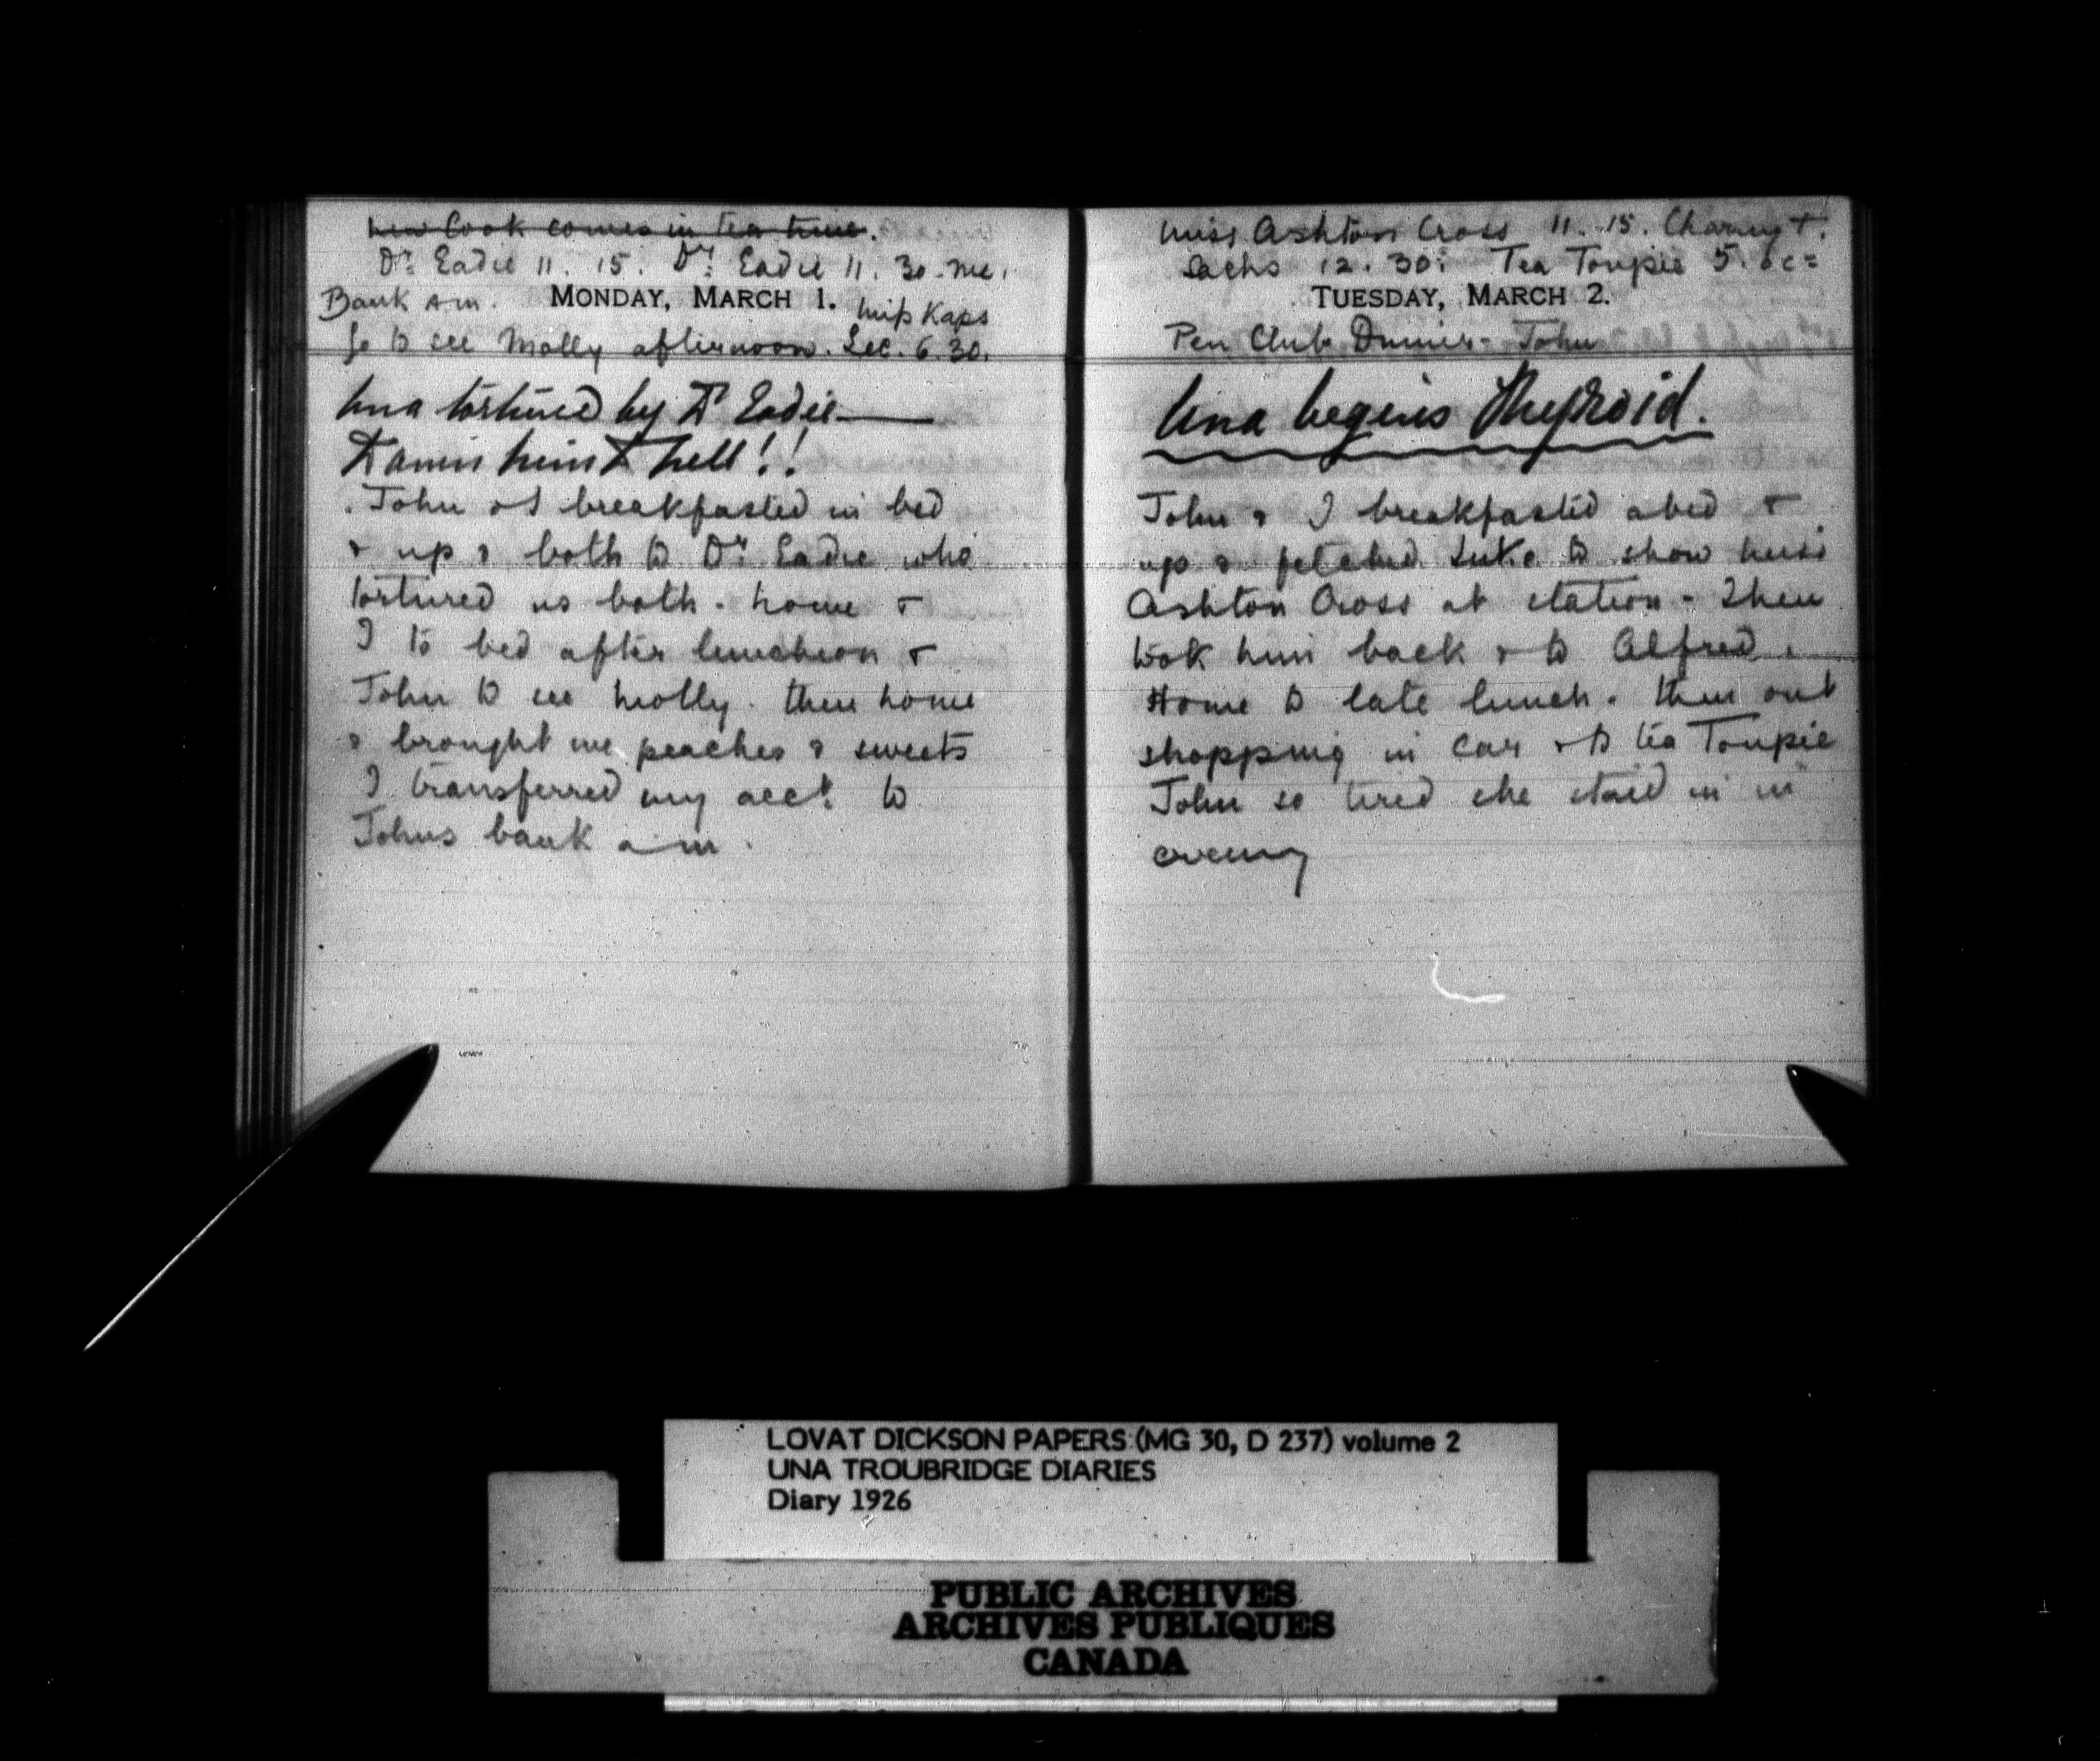 New Cook comes in tea time.
Dr: Eadie 11. 15. Dr: Eadie 11. 30. me.
Bank a.m. MONDAY, MARCH 1. Miss Kaps
Go to see Molly afternoon. Sec. 6.30.
Una tortured by Dr Eadie
Damn him to hell!!
John & I breakfasted in bed
& up & both to Dr Eadie who
tortured us both. home &
I to bed after luncheon &
John to see Molly. then home
& brought me peaches & sweets
I transferred my acct. to
Johns bank a.m.
Miss Ashton Cross 11. 15. Charing +.
Sachs 12. 30: Tea Toupie 5. oc=
TUESDAY, MARCH 2.
Pen Club Dinner - John
Una begins Thyroid.
John & I breakfasted abed &
up & fetched Luke to show Miss
Ashton Cross at station - Then
took him back & to Alfred.
Home to late lunch. then out
shopping in car & to tea Toupie
John so tired she staid in in
evening
LOVAT DICKSON PAPERS (MG 30, D 237) volume 2
UNA TROUBRIDGE DIARIES
Diary 1926
PUBLIC ARCHIVES
ARCHIVES PUBLIQUES
CANADA